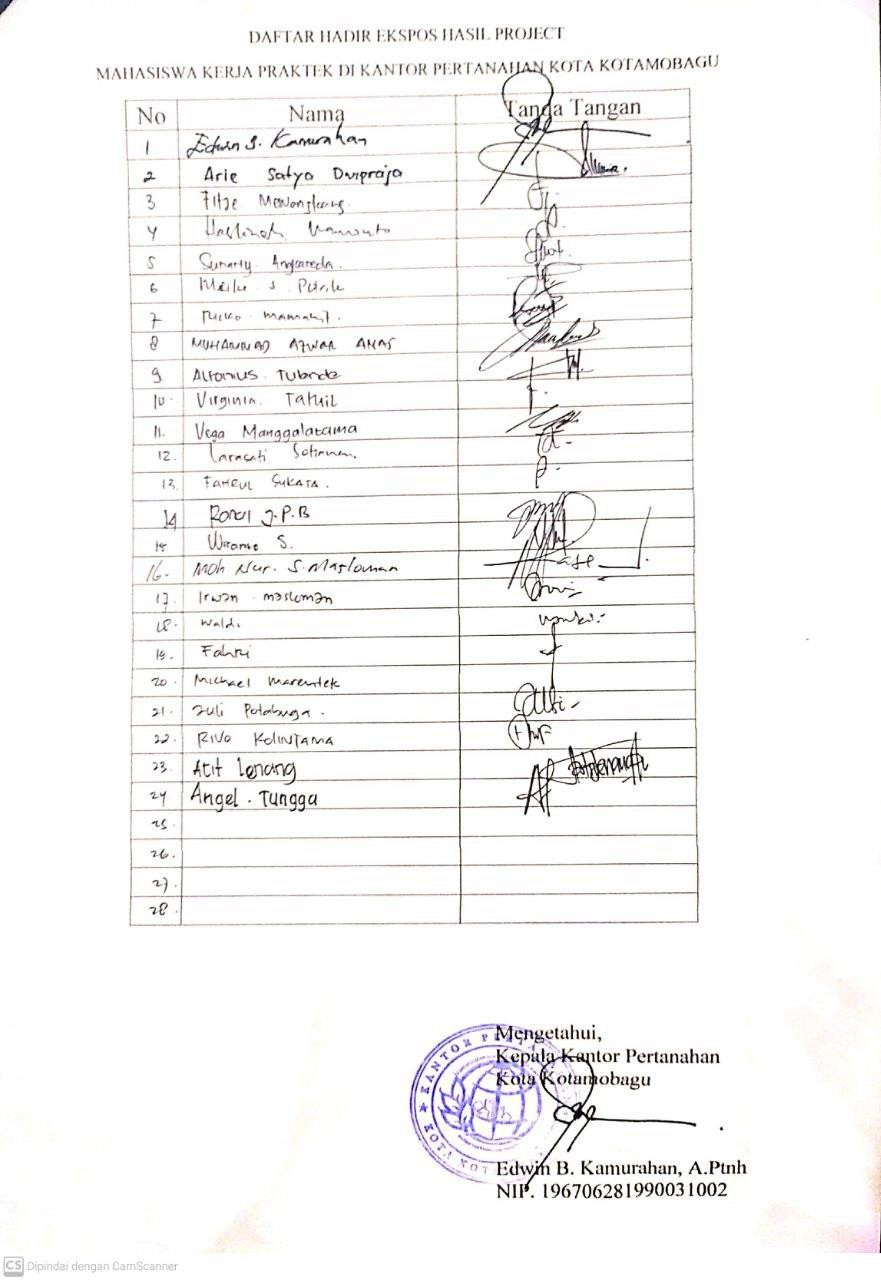 DAFTAR HADIR EKSPOS HASIL PROJECT
MAHASISWA KERJA PRAKTEK DI KANTOR PERTANAHAN KOTA KOTAMOBAGU
No Nama Tanda Tangan
1 Edwin B. Kamurahan
2 Arie Satya Dwipraja
3
4
5 Sunarty Angkareda.
6 Meike S
7 Mamahit.
8 MUHAMMAD AZWAR ANAS
9. ALFONIUS
10. Virginia Tatuil
11. Vega Manggalatama
12. Larasati
13. FAHRUL SUKATA.
14 Ronal J.P.B
15 S.
16. Moh Nur. S. Masloman
17. Irwan masloman
18. Waldi
19. Fahri
20. Michael Marentek
21. Juli Potabuga.
22. RIVO KOLINTAMA
23. Atit Lenang
24 Angel. Tungga
25.
26.
27.
28.
Mengetahui,
Kepala Kantor Pertanahan
Kota Kotamobagu
Edwin B. Kamurahan, A.Ptnh
NIP. 196706281990031002
CS Dipindai dengan CamScanner